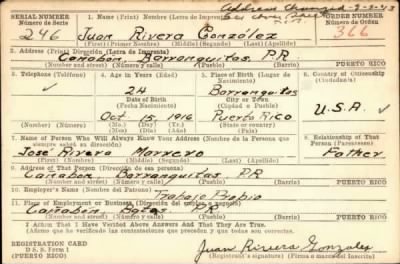 Address Changed - 9-2-43
SERIAL NUMBER
1. Name (Print) Nombre (Letra de Imprenta)
ORDER NUMBER
Número de Serie
Número de Orden
246 Juan Rivera González 366
(First) (Primer Nombre) (Middle) (Segundo) (Last) (Apellido)
2. Address (Print) Dirección (Letra de Imprenta)
Cañabon, Barranquitas, P.R.
(Number and street) (Número y calle) (Barrio) PUERTO RICO
3. Telephone (Teléfono) 4. Age in Years (Edad) 5. Place of Birth (Lugar de Nacimiento) 6. Country of Citizenship (Ciudadanía)
24 Barranquitas
Date of Birth City or Town
(Fecha Nacimiento) (Ciudad o Pueblo)
U.S.A.
Oct. 15, 1916 Puerto Rico
(Mo.) (Day) (Yr.) State or country
7. Name of Person Who Will Always Know Your Address (Nombre de la Persona que siempre sabrá su dirección) 8. Relationship of That Person (Parentesco)
José Rivera Marrero Father
(First) (Nombre) (Middle) (Segundo) (Last) (Apellido)
9. Address of That Person (Dirección de esa persona)
Cañabon, Barranquitas, P.R.
(Number and street) (Número y calle) (Barrio) PUERTO RICO
10. Employer's Name (Nombre del Patrono)
Trabajo Propio
11. Place of Employment or Business
Cañabón P.R.
(Number and street) (Número y calle) (Barrio) PUERTO RICO
I Affirm That I Have Verified Above Answers And That They Are True.
(Afirmo que he verificado las contestaciones que preceden y que todas son correctas.)
REGISTRATION CARD
D. S. S. Form 1
(PUERTO RICO)
Juan Rivera Gonzalez
Registrant's signature (Firma o marca del Inscrito)